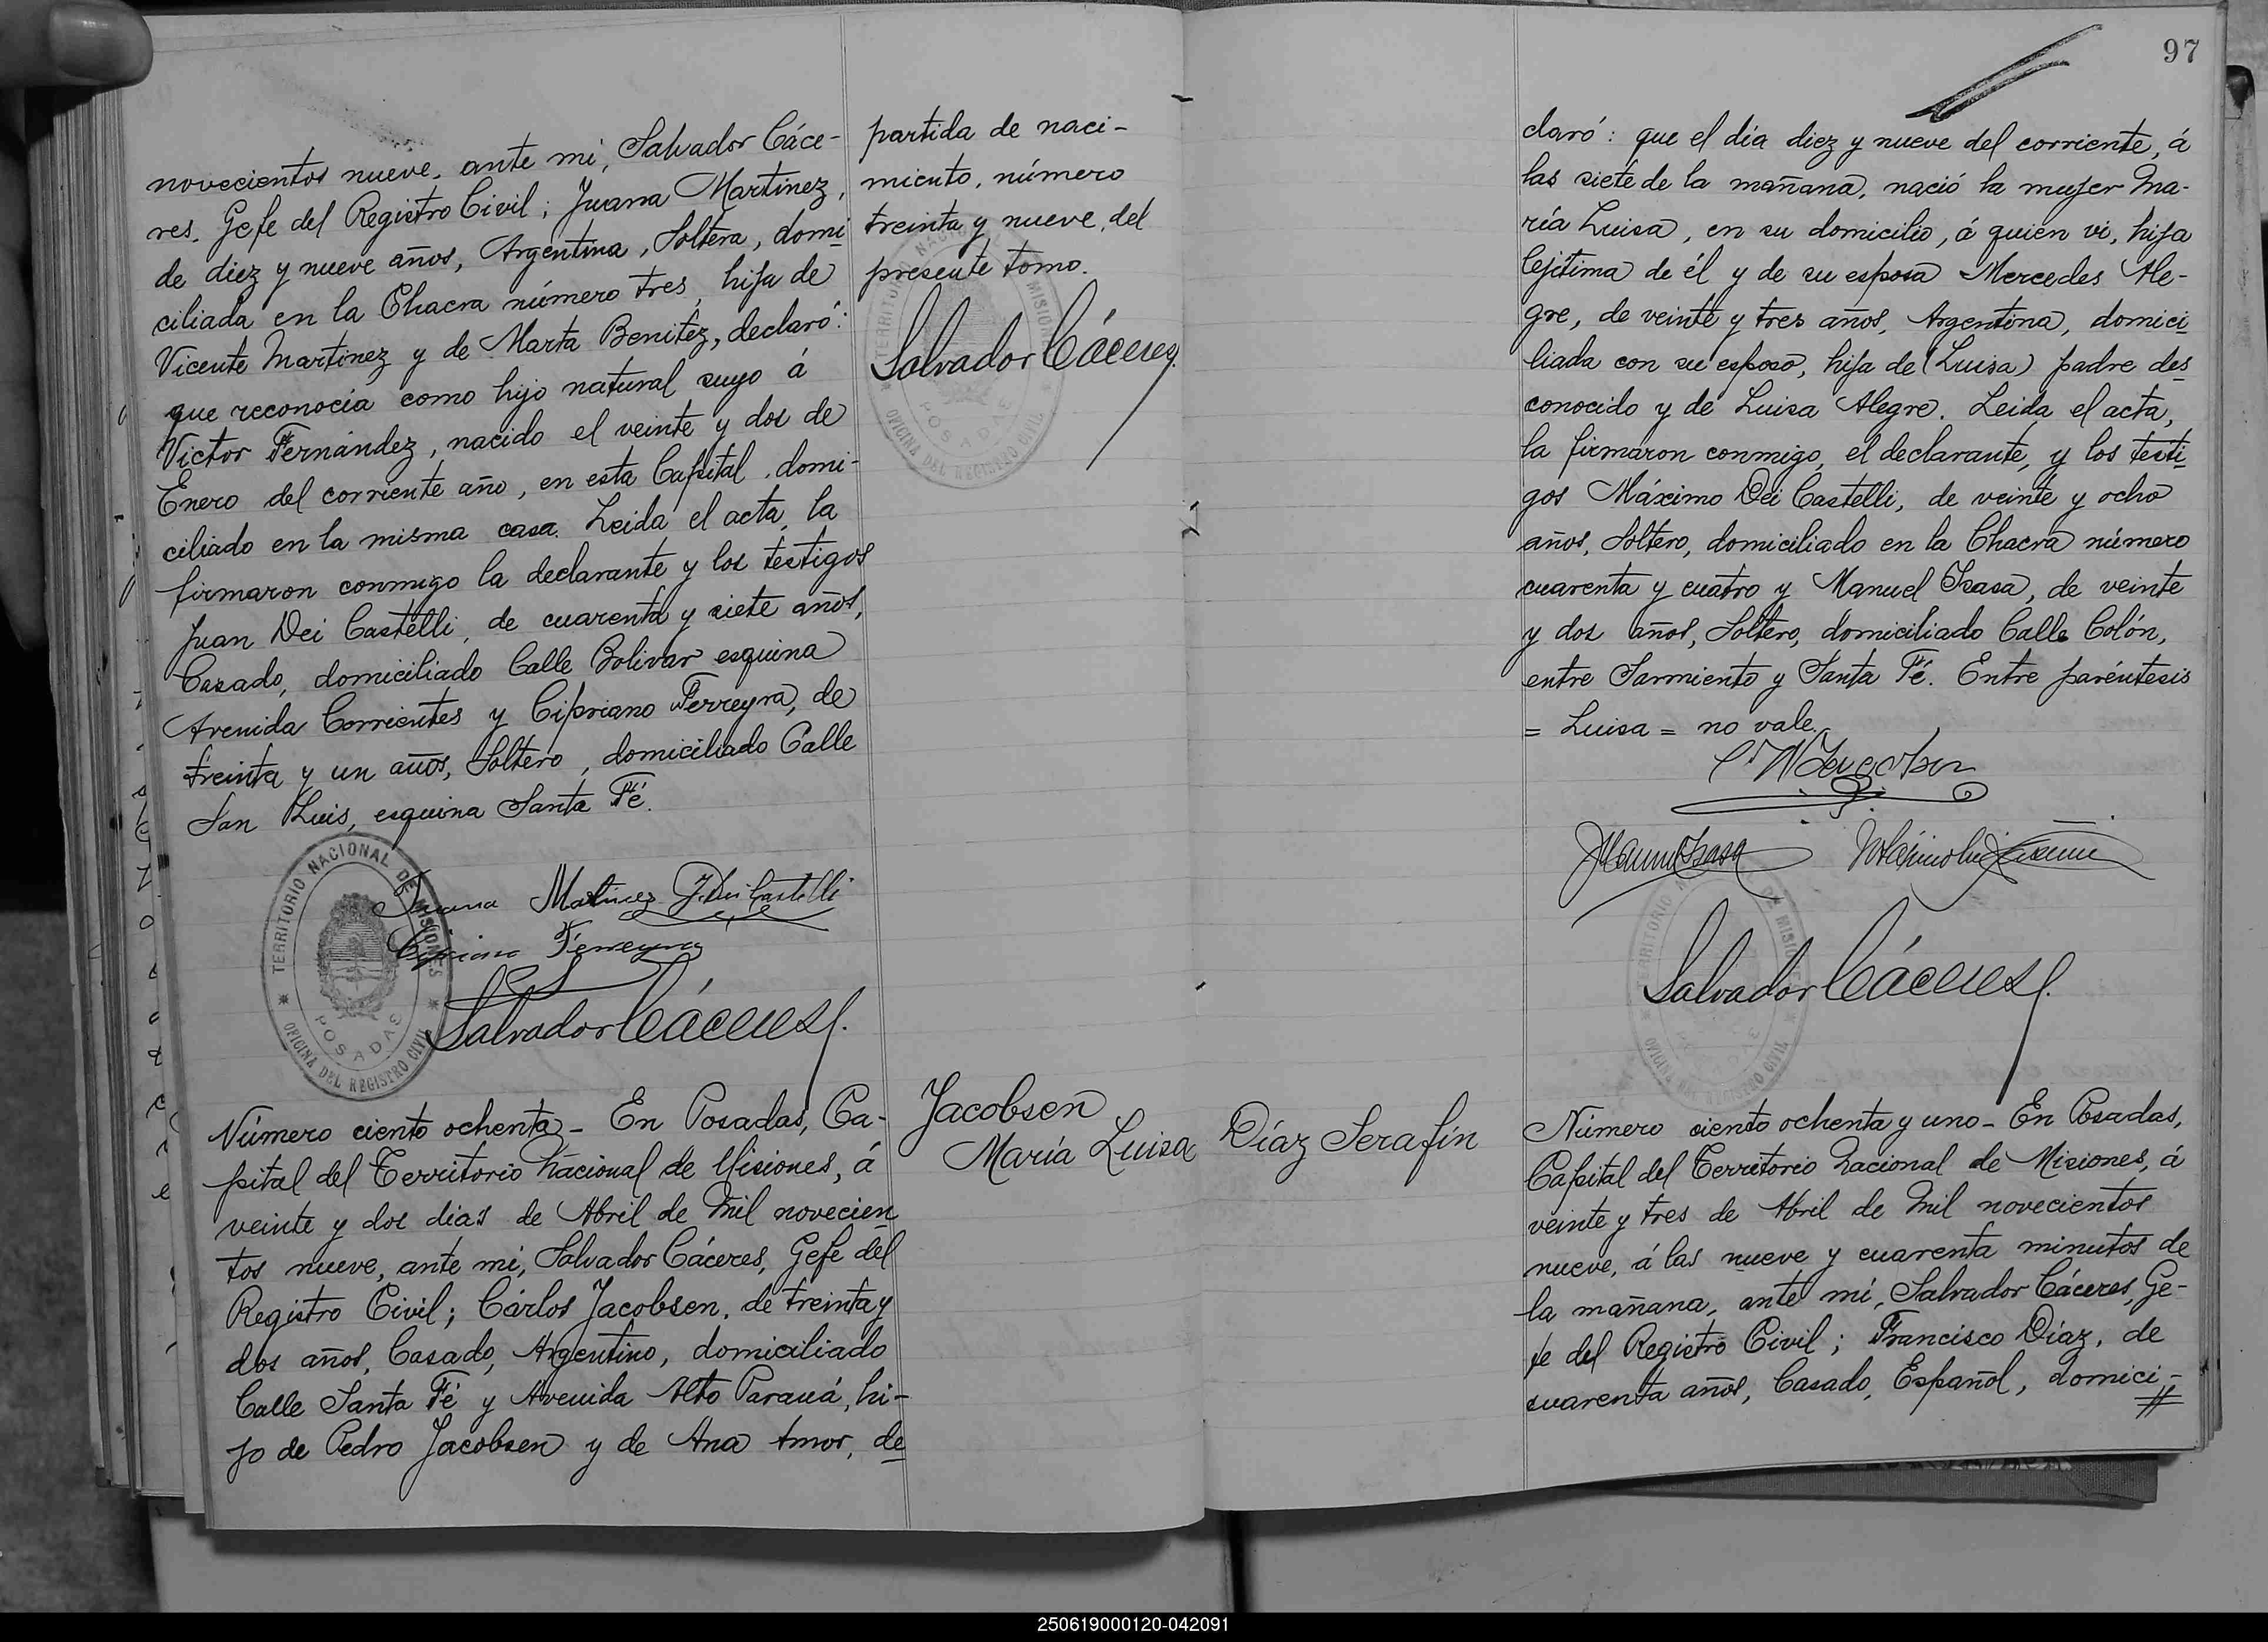 novecientos nueve, ante mi, Salvador Cáce-
res, Gefe del Registro Civil; Juana Martinez,
de diez y nueve años, Argentina, Soltera, domi
ciliada en la Chacra número tres, hija de
Vicente Martinez y de Marta Benitez, declaró:
que reconocía como hijo natural suyo á
Victor Fernández, nacido el veinte y dos de
Enero del corriente año, en esta Capital, domi-
ciliado en la misma casa. Leida el acta, la
firmaron conmigo la declarante y los testigos
Juan Dei Castelli, de cuarenta y siete años,
Casado, domiciliado Calle Bolivar esquina
Avenida Corrientes y Cipriano Ferreyra, de
treinta y un años, Soltero, domiciliado Calle
San Luis, esquina Santa Fé.
Juana Matinez J. Dei Castelli
Cipriano Ferreyra
Salvador Cáceres
TERRITORIO NACIONAL DE MISIONES
POSADAS
OFICINA DEL REGISTRO CIVIL
partida de naci-
miento, número
treinta y nueve, del
presente tomo.
Salvador Cáceres
TERRITORIO NACIONAL DE MISIONES
POSADAS
OFICINA DEL REGISTRO CIVIL
Número ciento ochenta - En Posadas, Ca-
pital del Territorio Nacional de Misiones, á
veinte y dos dias de Abril de Mil novecien
tos nueve, ante mi, Salvador Cáceres, Gefe del
Registro Civil; Cárlos Jacobsen, de treinta y
dos años, Casado, Argentino, domiciliado
Calle Santa Fé y Avenida Alto Paraná, hi-
jo de Pedro Jacobsen y de Ana Amor, de
Jacobsen
María Luisa
97
claró: que el día diez y nueve del corriente, á
las siete de la mañana, nació la mujer Ma-
ría Luisa, en su domicilio, á quien vi, hija
lejítima de él y de su esposa Mercedes Ale-
gre, de veinte y tres años, Argentina, domici
liada con su esposo, hija de (Luisa) padre des
conocido y de Luisa Alegre. Leida el acta,
la firmaron conmigo, el declarante, y los testi
gos Máximo Dei Castelli, de veinte y ocho
años, Soltero, domiciliado en la Chacra número
cuarenta y cuatro y Manuel Isasa, de veinte
y dos años, Soltero, domiciliado Calle Colón,
entre Sarmiento y Santa Fé. Entre paréntesis
= Luisa = no vale.
Salvador Cáceres
TERRITORIO NACIONAL DE MISIONES
POSADAS
OFICINA DEL REGISTRO CIVIL
Díaz Serafín
Número ciento ochenta y uno - En Posadas,
Capital del Territorio Nacional de Misiones, á
veinte y tres de Abril de Mil novecientos
nueve, á las nueve y cuarenta minutos de
la mañana, ante mi, Salvador Cáceres, Ge-
fe del Registro Civil; Francisco Díaz, de
cuarenta años, Casado, Español, domici-
250619000120-042091